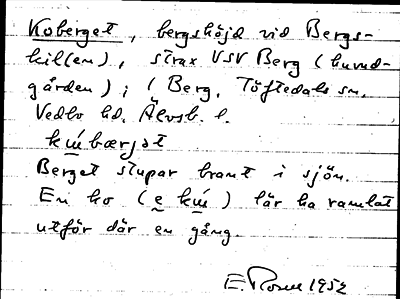 Koberget, bergshöjd vid Bergs-
kil(en), strax VSV Berg (huvud-
gården); i Berg, Töftedals sn,
Vedbo hd, Älvsb. l.
kúbærjət
Berget stupar brant i sjön.
En ko (e kú) lär ha ramlat
utför där en gång.
E. 1952